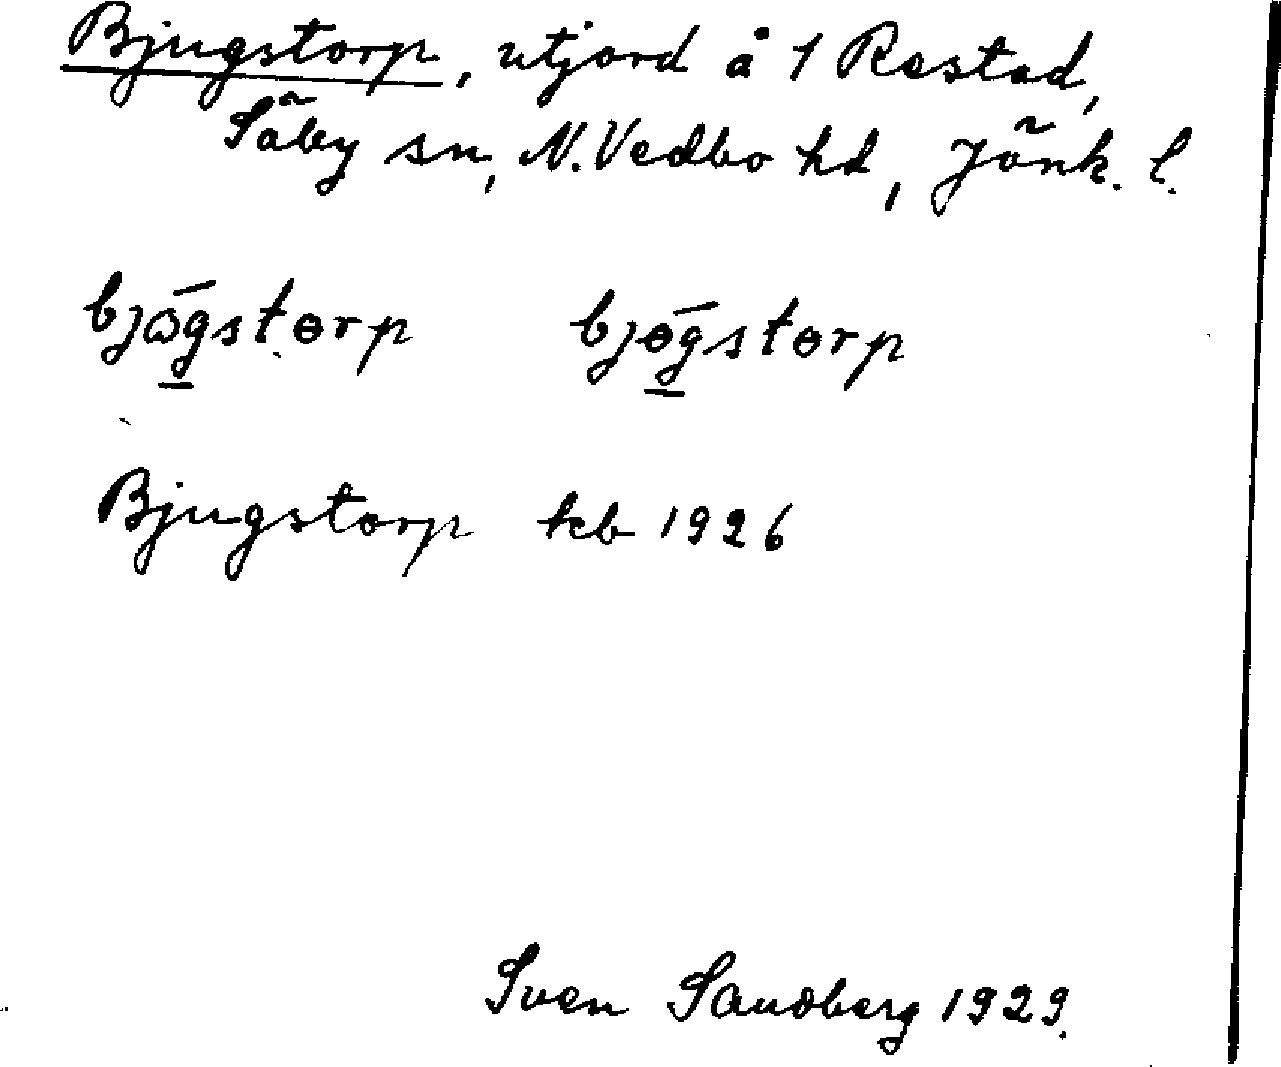 Bjugstorp, utjord å 1 Restad,
Säby sn, N. Vedbo hd, Jönk. l.
bjɷgstɵrp bjɵgstɵrp
Bjugstorp kb 1926
Sven Sandberg 1929.